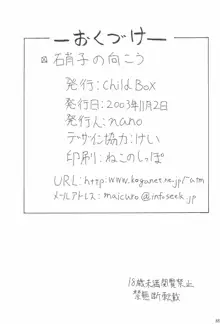 おくづけ
硝子の向こう
発行:Child Box
発行日:2003年11月2日
発行人:nano
デザイン協力:けい
印刷:ねこのしっぽ
URL:http:www.koganet.ne.jp/~atm
メールアドレス:maicuro@infoseek.jp
18歳未満閲覧禁止
禁無断転載